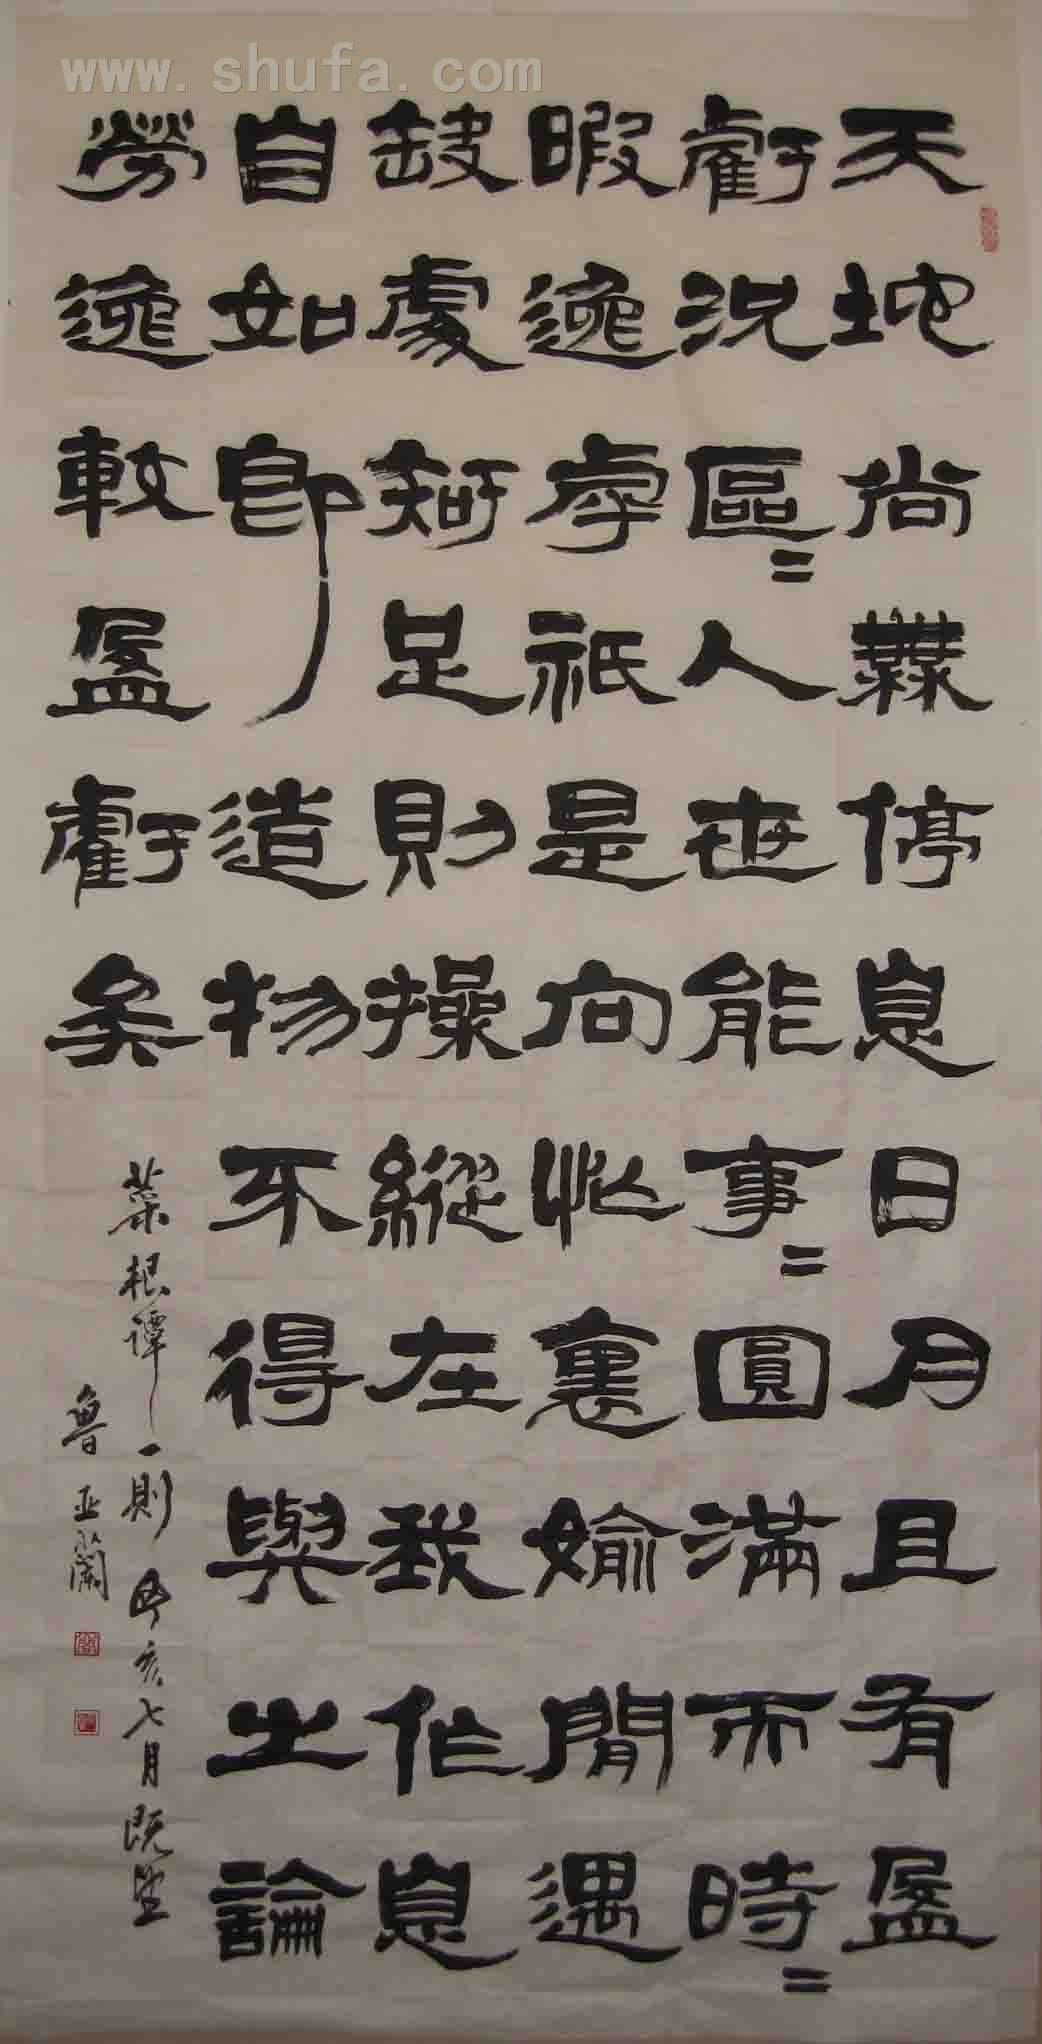 www.shufa.com
天地尚無停息日月且有盈
虧況區〻人世能事〻圓滿而時〻
暇逸乎祇是向忙裏婾閒遇
缺處知足則操縱在我作息
自如即造物不得與之論
勞逸較盈虧矣
菜根譚一則丁亥七月既望
魯亚蘭